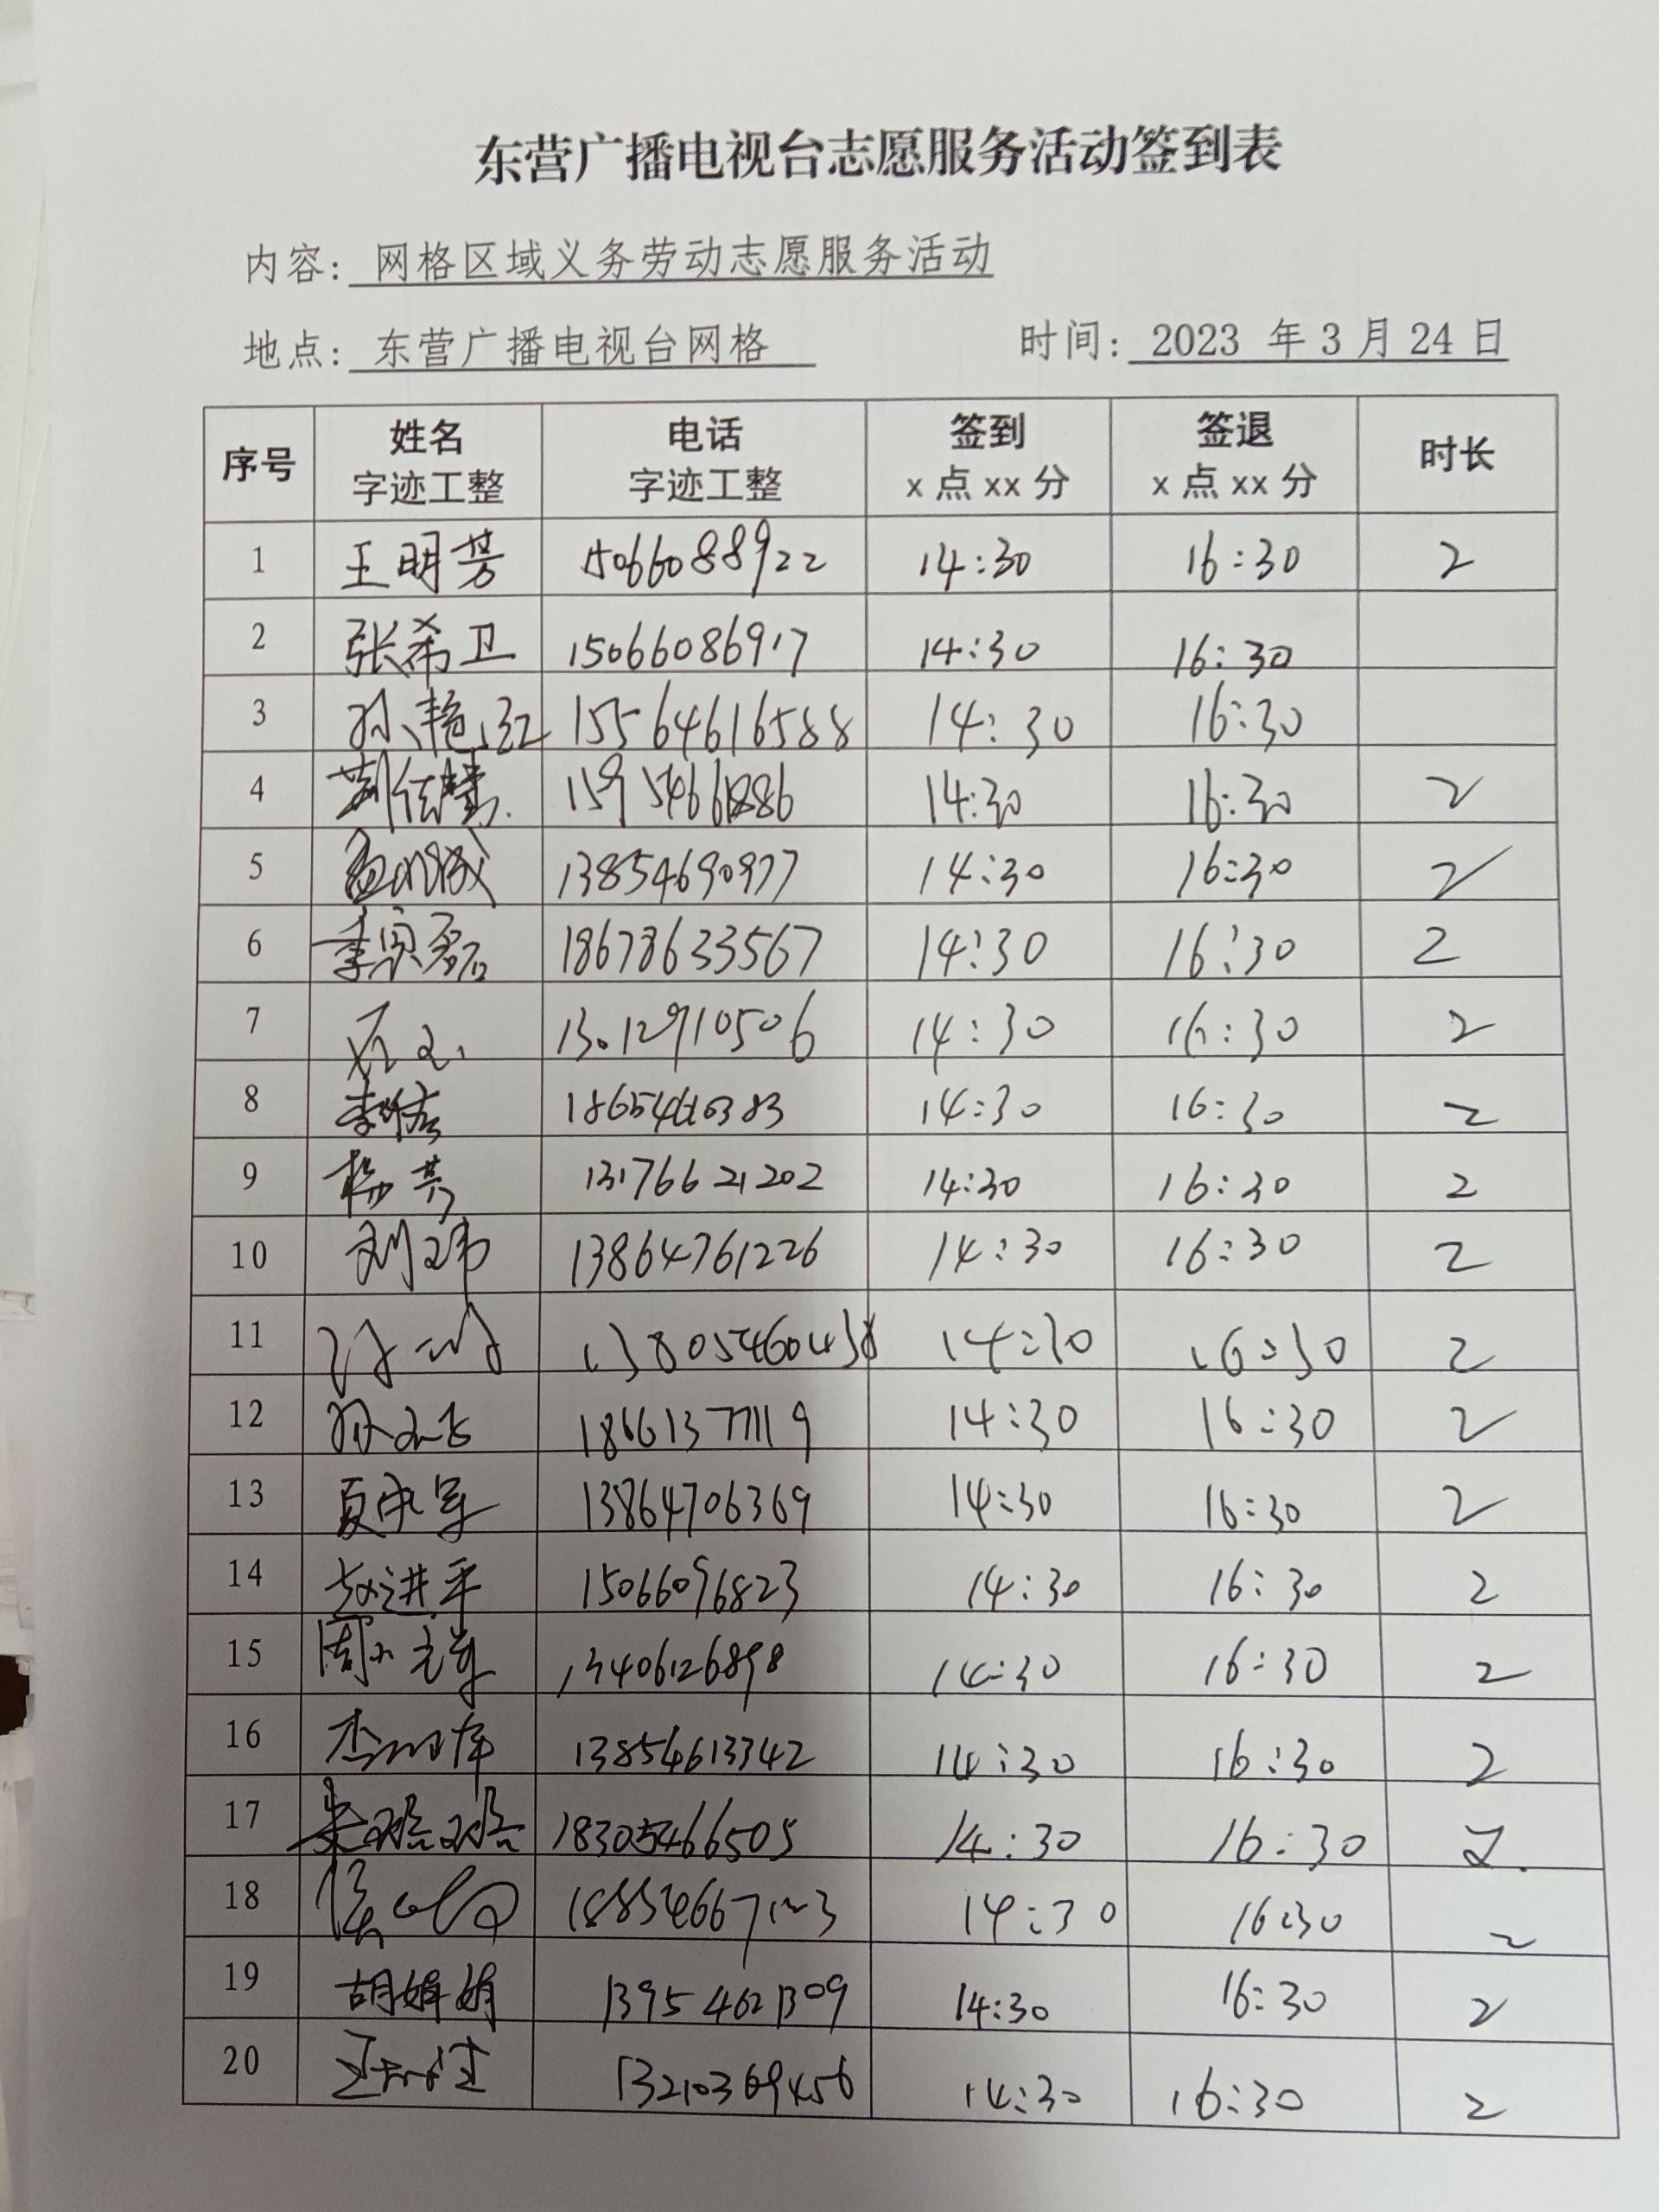 东营广播电视台志愿服务活动签到表
内容: 网格区域义务劳动志愿服务活动
地点: 东营广播电视台网格 时间: 2023 年 3 月 24 日
序号 姓名 电话 签到 签退 时长
字迹工整 字迹工整 x 点 xx 分 x 点 xx 分
1 王明芳 15066088922 14:30 16:30 2
2 张希卫 15066086917 14:30 16:30
3 孙艳红 15564616588 14:30 16:30
4 15954661886 14:30 16:30 2
5 13854690977 14:30 16:30 2
6 18678633567 14:30 16:30 2
7 13012910506 14:30 16:30 2
8 14:30 16:30 2
9 杨英 13176621202 14:30 16:30 2
10 刘玮 13864761226 14:30 16:30 2
11 13805460438 14:30 16:30 2
12 18661377119 14:30 16:30 2
13 13864706369 14:30 16:30 2
14 赵进平 15066096823 14:30 16:30 2
15 13406126898 14:30 16:30 2
16 13854613342 14:30 16:30 2
17 18305466505 14:30 16:30 2
18 14:30 16:30 2
19 胡娟娟 13954621309 14:30 16:30 2
20 13210369456 14:30 16:30 2